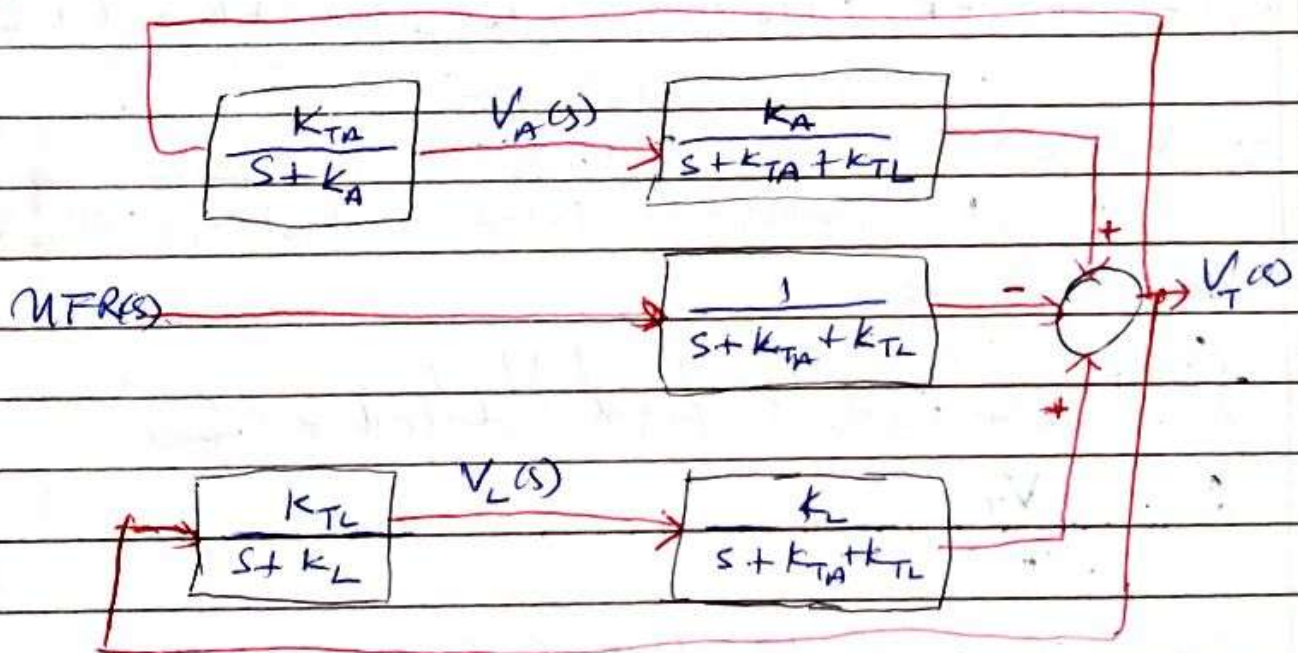 K_TA / (S + K_A)
V_A(s)
K_A / (s + K_TA + K_TL)
+
UFR(s)
1 / (s + K_TA + K_TL)
-
V_T(s)
+
K_TL / (s + K_L)
V_L(s)
K_L / (s + K_TA + K_TL)